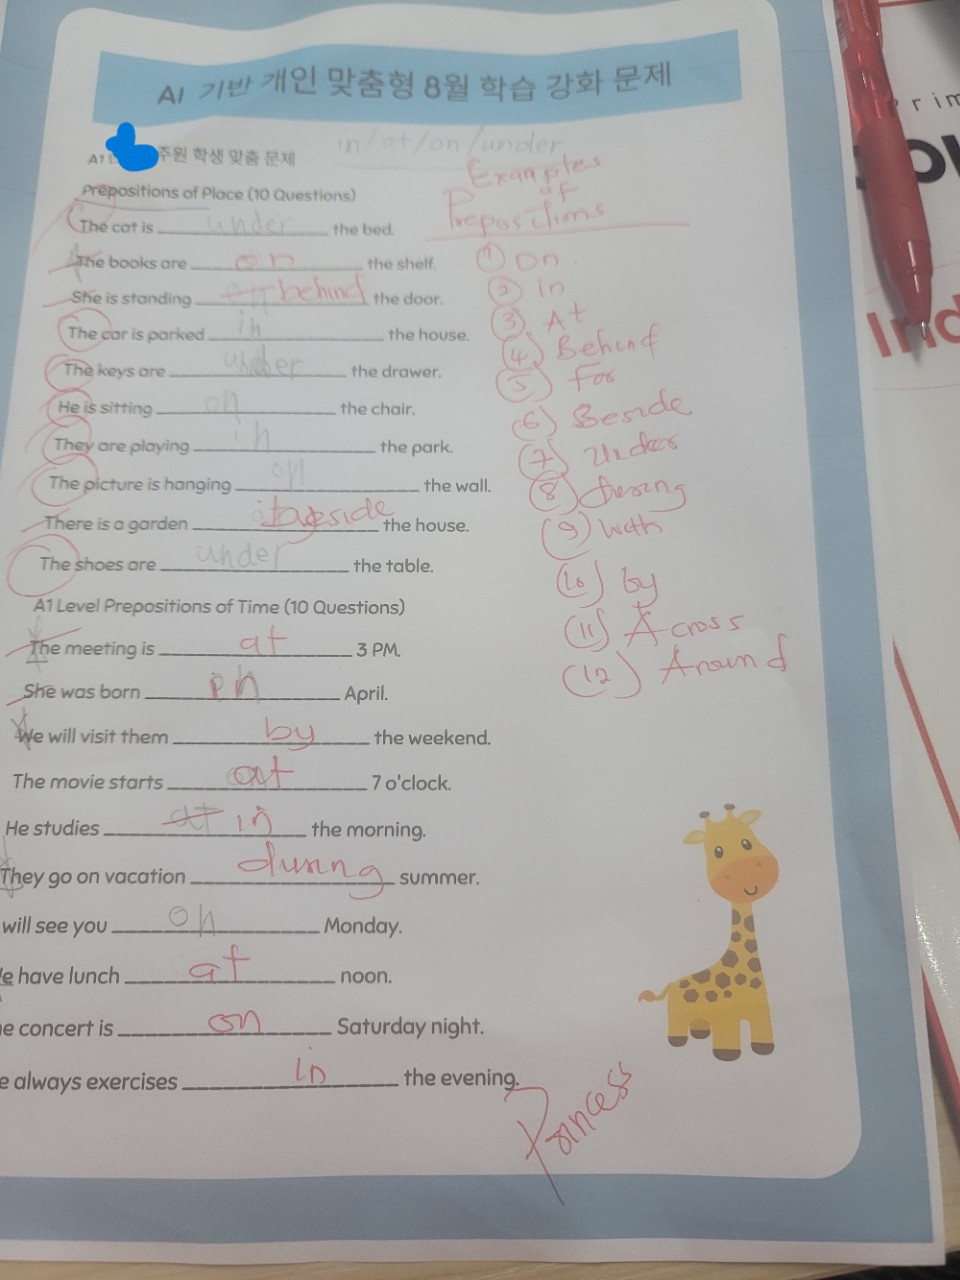 AI 기반 개인 맞춤형 8월 학습 강화 문제
in/at/on/under
A1 주원 학생 맞춤 문제
Examples
of
Prepositions
Prepositions of Place (10 Questions)
The cat is under the bed.
The books are on the shelf.
She is standing behind the door.
The car is parked in the house.
The keys are under the drawer.
He is sitting on the chair.
They are playing in the park.
The picture is hanging on the wall.
There is a garden beside the house.
The shoes are under the table.
A1 Level Prepositions of Time (10 Questions)
The meeting is at 3 PM.
She was born in April.
We will visit them by the weekend.
The movie starts at 7 o'clock.
He studies at in the morning.
They go on vacation during summer.
will see you on Monday.
have lunch at noon.
concert is on Saturday night.
always exercises in the evening.
① On
② In
③ At
④ Behind
⑤ For
(6) Beside
(7) Under
(8) during
(9) With
(10) by
(11) Across
(12) Around
Princess